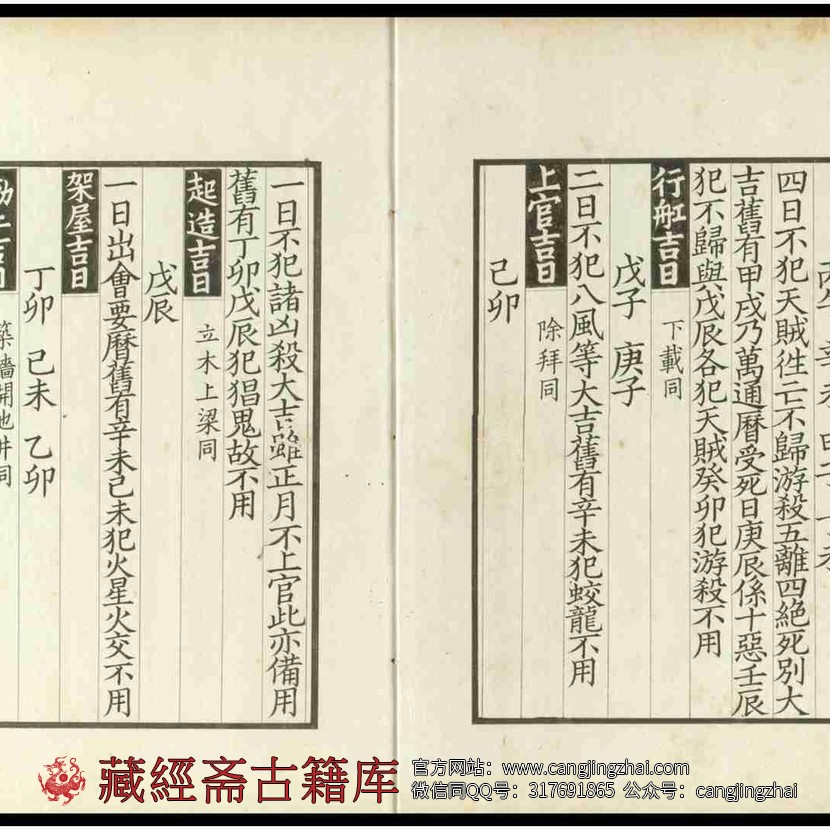 四日不犯天賊徃亡不歸游殺五離四絕死別大
吉舊有甲戌乃萬通曆受死日庚辰係十惡壬辰
犯不歸與戊辰各犯天賊癸卯犯游殺不用
行舡吉日 下載同
戊子 庚子
二日不犯八風等大吉舊有辛未犯蛟龍不用
上官吉日 除拜同
己卯
一日不犯諸凶殺大吉雖正月不上官此亦備用
舊有丁卯戊辰犯猖鬼故不用
起造吉日 立木上梁同
戊辰
一日出會要曆舊有辛未己未犯火星火交不用
架屋吉日
丁卯 己未 乙卯
土吉日 築墻開池井同
藏經斋古籍库
官方网站：www.cangjingzhai.com
微信同QQ号：317691865 公众号：cangjingzhai